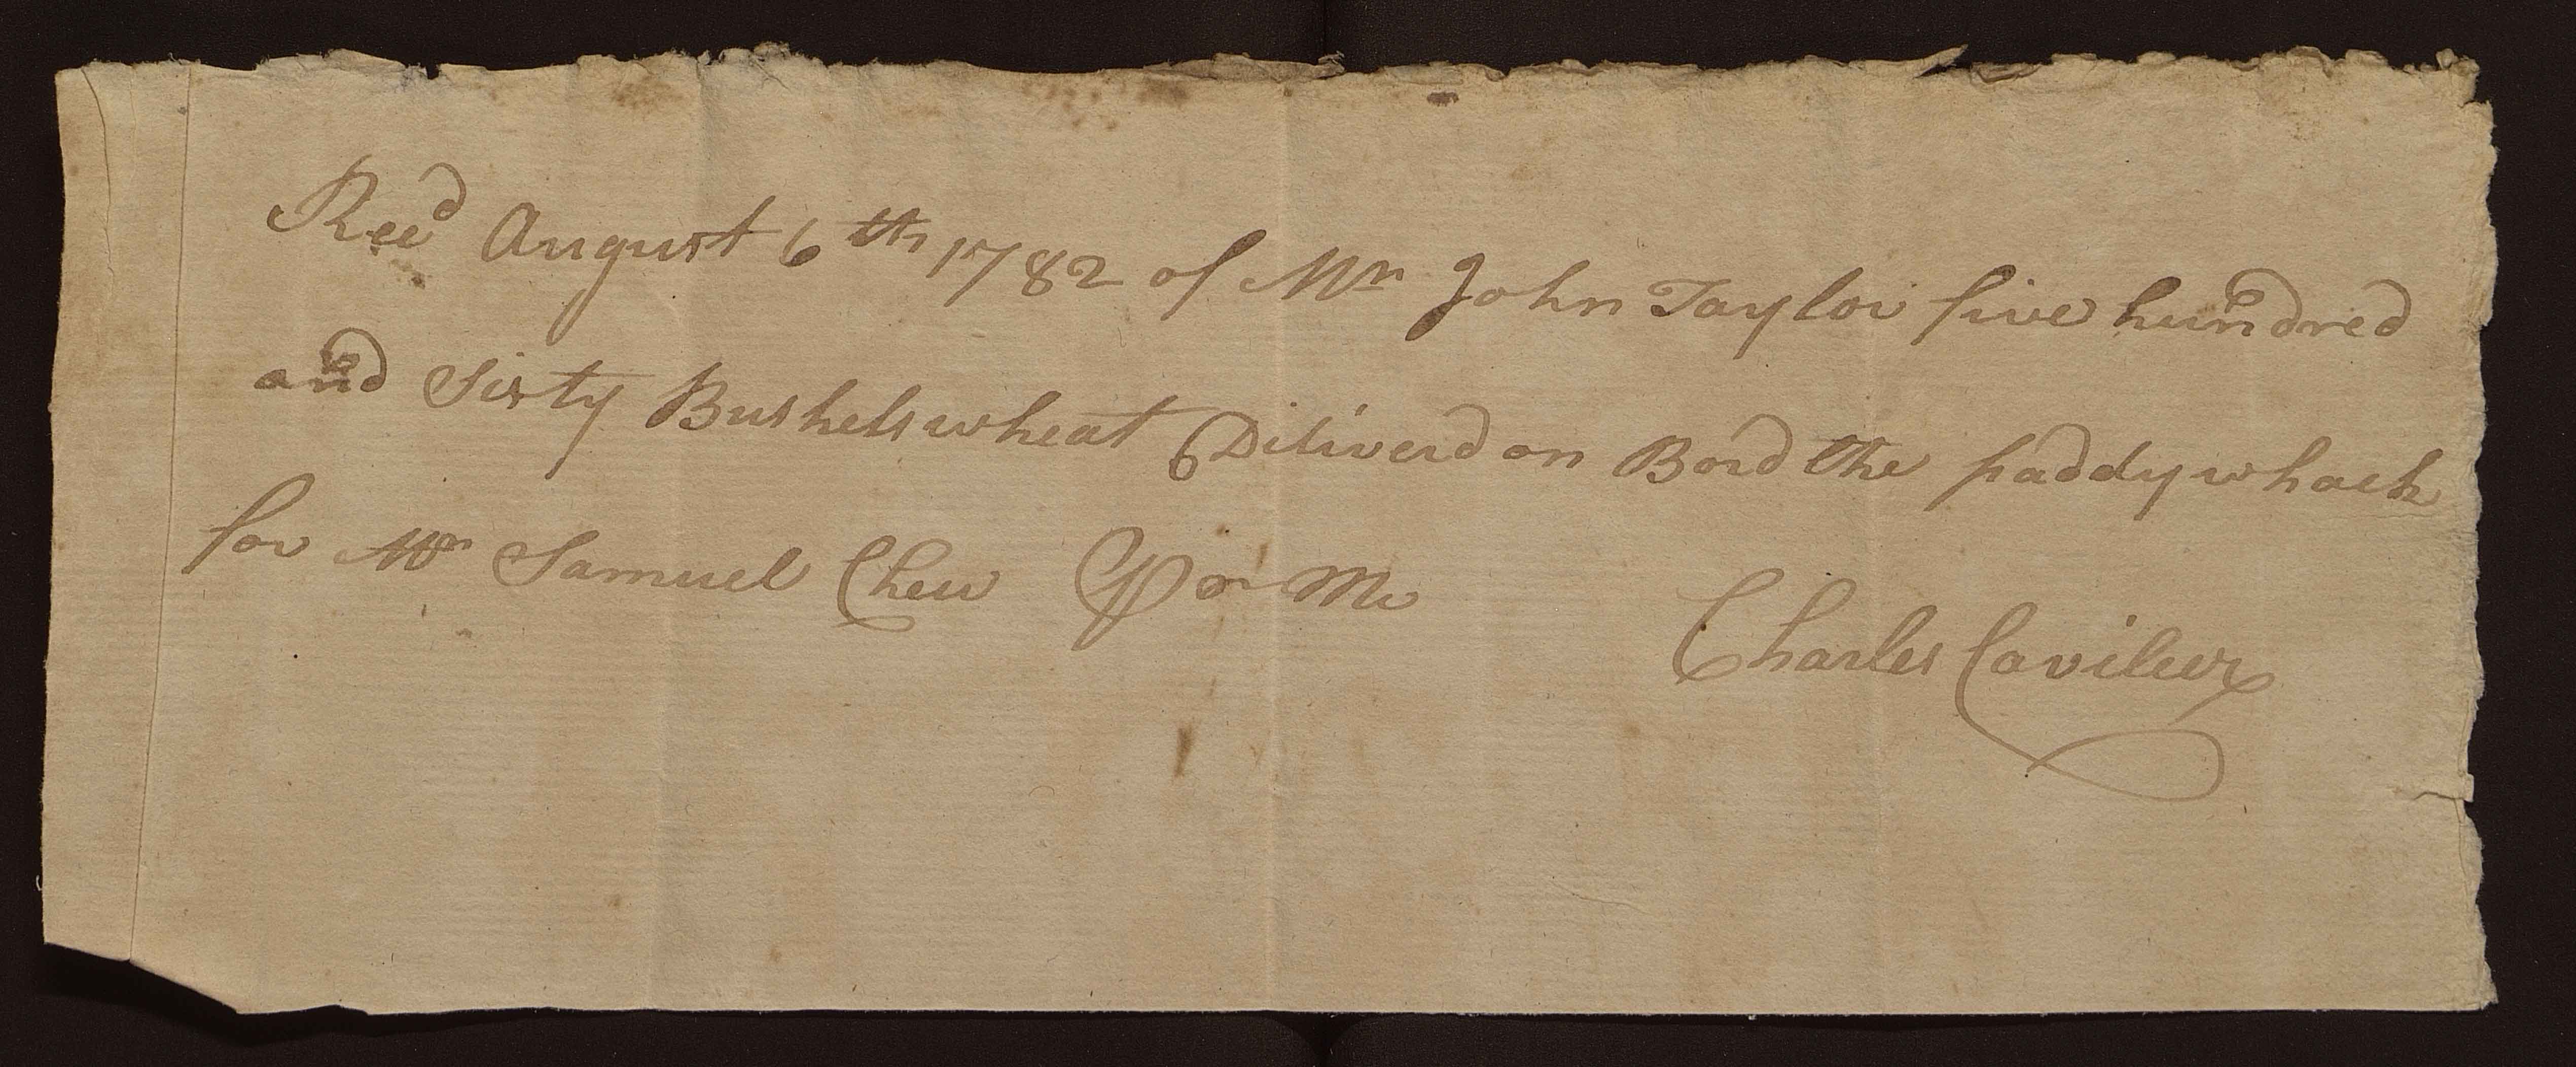 Recd August 6th 1782 of Mr John Taylor five hundred
and Sixty Bushels wheat Diliverd on Bord the paddywhack
for Mr Samuel Chew Pr Me
Charles Cavileer